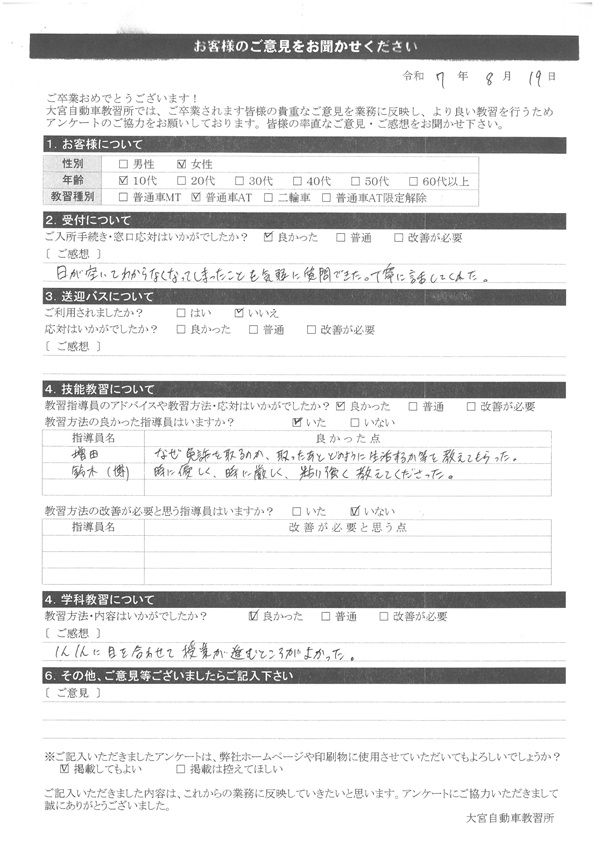 お客様のご意見をお聞かせください
令和 7 年 8 月 19 日
ご卒業おめでとうございます!
大宮自動車教習所では、ご卒業されます皆様の貴重なご意見を業務に反映し、より良い教習を行うため
アンケートのご協力をお願いしております。皆様の率直なご意見・ご感想をお聞かせ下さい。
1. お客様について
性別 □ 男性 ☑ 女性
年齢 ☑ 10代 □ 20代 □ 30代 □ 40代 □ 50代 □ 60代以上
教習種別 □ 普通車MT ☑ 普通車AT □ 二輪車 □ 普通車AT限定解除
2. 受付について
ご入所手続き・窓口応対はいかがでしたか? ☑ 良かった □ 普通 □ 改善が必要
[ ご感想 ]
日が空いてわからなくなってしまったことも気軽に質問できた。丁寧に話してくれた。
3. 送迎バスについて
ご利用されましたか? □ はい ☑ いいえ
応対はいかがでしたか? □ 良かった □ 普通 □ 改善が必要
[ ご感想 ]
4. 技能教習について
教習指導員のアドバイスや教習方法・応対はいかがでしたか? ☑ 良かった □ 普通 □ 改善が必要
教習方法の良かった指導員はいますか? ☑ いた □ いない
指導員名 良かった点
増田 なぜ免許を取るのか、取ったあとどのように生活するか等を教えてもらった。
鈴木(博) 時に優しく、時に厳しく、粘り強く教えてくださった。
教習方法の改善が必要と思う指導員はいますか? □ いた ☑ いない
指導員名 改善が必要と思う点
4. 学科教習について
教習方法・内容はいかがでしたか? ☑ 良かった □ 普通 □ 改善が必要
[ ご感想 ]
1人1人に目を合わせて授業が進むところがよかった。
6. その他、ご意見等ございましたらご記入下さい
[ ご意見 ]
※ご記入いただきましたアンケートは、弊社ホームページや印刷物に使用させていただいてもよろしいでしょうか?
☑ 掲載してもよい □ 掲載は控えてほしい
ご記入いただきました内容は、これからの業務に反映していきたいと思います。アンケートにご協力いただきまして
誠にありがとうございました。
大宮自動車教習所